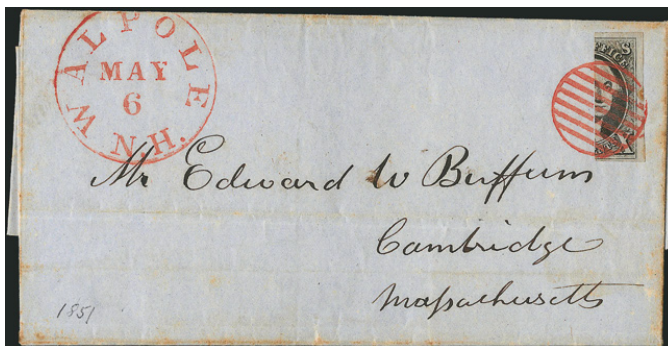 WALPOLE N.H.
MAY
6
Mr Edward W Buffum
Cambridge
Massachusetts
1851